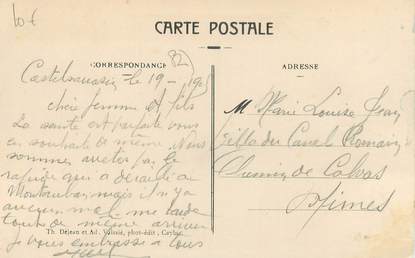 10 €
CARTE POSTALE
CORRESPONDANCE
82
ADRESSE
Castelsarrasin le 19 - 190
chère femme et fils
La santé est parfaite vous
en souhaite de même. Nous
sommes arrêté par le
rapide qui a déraillé a
Montauban mais il n'y a
aucun mal me tarde
tous de même arriver
je vous embrasse a tous
M Marie Louise Jean
Villa du Canal Romain
Chemin de Calvas
Nimes
Th. Dejean et Ad. Valissié, phot-édit, Caylus